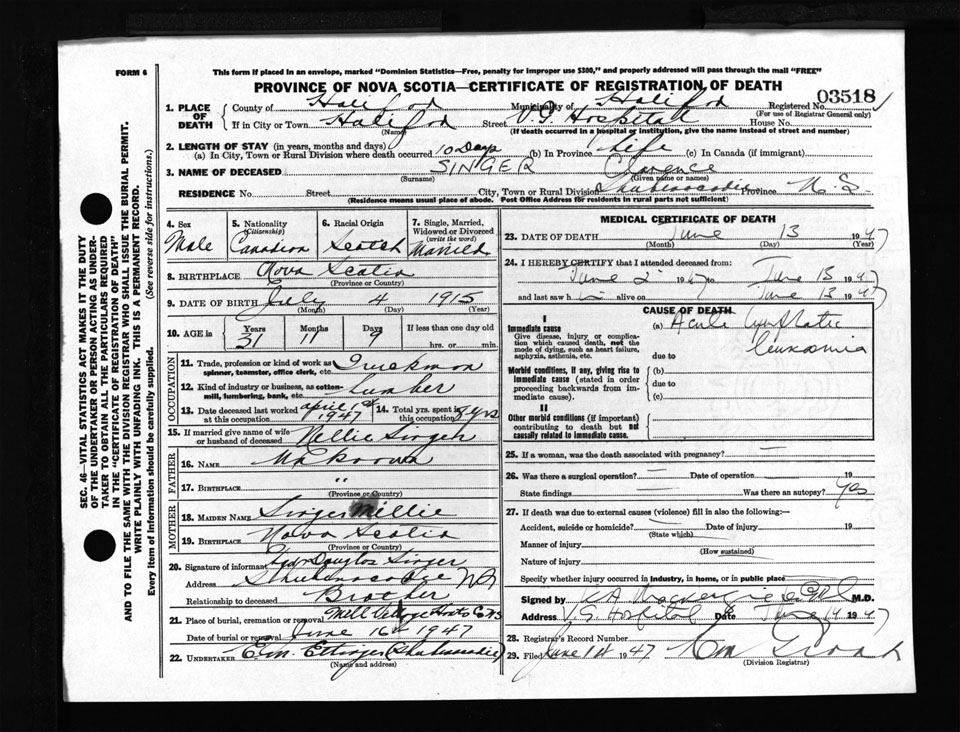 FORM 6
This form if placed in an envelope, marked "Dominion Statistics—Free, penalty for improper use $300," and properly addressed will pass through the mail "FREE"
PROVINCE OF NOVA SCOTIA—CERTIFICATE OF REGISTRATION OF DEATH
SEC. 46—VITAL STATISTICS ACT MAKES IT THE DUTY
OF THE UNDERTAKER OR PERSON ACTING AS UNDER-
TAKER TO OBTAIN ALL THE PARTICULARS REQUIRED
IN THE "CERTIFICATE OF REGISTRATION OF DEATH"
AND TO FILE THE SAME WITH THE DIVISION REGISTRAR WHO SHALL ISSUE THE BURIAL PERMIT.
WRITE PLAINLY WITH UNFADING INK. THIS IS A PERMANENT RECORD.
Every item of Information should be carefully supplied. (See reverse side for instructions.)
1. PLACE OF DEATH County of Halifax Municipality of Halifax Registered No. 03518
(For use of Registrar General only)
If in City or Town Halifax Street V.G. Hospital House No.
(Name) (If death occurred in a hospital or institution, give the name instead of street and number)
2. LENGTH OF STAY (in years, months and days)
(a) In City, Town or Rural Division where death occurred 10 Days (b) In Province Life (c) In Canada (if immigrant)
3. NAME OF DECEASED SINGER Clarence
(Surname) (Given name or names)
RESIDENCE No. Street City, Town or Rural Division Shubenacadie Province N.S.
(Residence means usual place of abode. Post Office Address for residents in rural parts not sufficient)
4. Sex Male
5. Nationality (Citizenship) Canadian
6. Racial Origin Scotch
7. Single, Married, Widowed or Divorced (write the word) Married
8. BIRTHPLACE Nova Scotia
(Province or Country)
9. DATE OF BIRTH July 4 1915
(Month) (Day) (Year)
10. AGE in Years 31 Months 11 Days 9 If less than one day old
hrs. or min.
OCCUPATION
11. Trade, profession or kind of work as spinner, teamster, office clerk, etc. Truckman
12. Kind of industry or business, as cotton-mill, lumbering, bank, etc. Lumber
13. Date deceased last worked at this occupation April 1st 1947
14. Total yrs. spent in this occupation 8 yrs
15. If married give name of wife or husband of deceased Nellie Singer
FATHER
16. NAME Unknown
17. BIRTHPLACE "
(Province or Country)
MOTHER
18. MAIDEN NAME Singer Millie
19. BIRTHPLACE Nova Scotia
(Province or Country)
20. Signature of informant Douglas Singer
Address Shubenacadie NS
Relationship to deceased Brother
21. Place of burial, cremation or removal Mill Village Hants Co NS
Date of burial or removal June 16th 1947
22. UNDERTAKER E.M. Ettinger (Shubenacadie)
(Name and address)
MEDICAL CERTIFICATE OF DEATH
23. DATE OF DEATH June 13 1947
(Month) (Day) (Year)
24. I HEREBY CERTIFY that I attended deceased from:
June 2 1947 to June 13 1947
and last saw him alive on June 13 1947
CAUSE OF DEATH
I
Immediate cause
Give disease, injury or complication which caused death, not the mode of dying, such as heart failure, asphyxia, asthenia, etc.
(a) Acute Lymphatic
due to leukaemia
Morbid conditions, if any, giving rise to immediate cause (stated in order proceeding backwards from immediate cause).
(b)
due to
(c)
II
Other morbid conditions (if important) contributing to death but not causally related to immediate cause.
25. If a woman, was the death associated with pregnancy? —
26. Was there a surgical operation? — Date of operation 19
State findings — Was there an autopsy? Yes
27. If death was due to external causes (violence) fill in also the following:—
Accident, suicide or homicide? Date of injury 19
(State which)
Manner of injury
(How sustained)
Nature of injury
Specify whether injury occurred in industry, in home, or in public place
Signed by K A Mackenzie M.D.
Address V.G. Hospital Date June 14 1947
28. Registrar's Record Number
29. Filed June 18 1947
(Division Registrar)